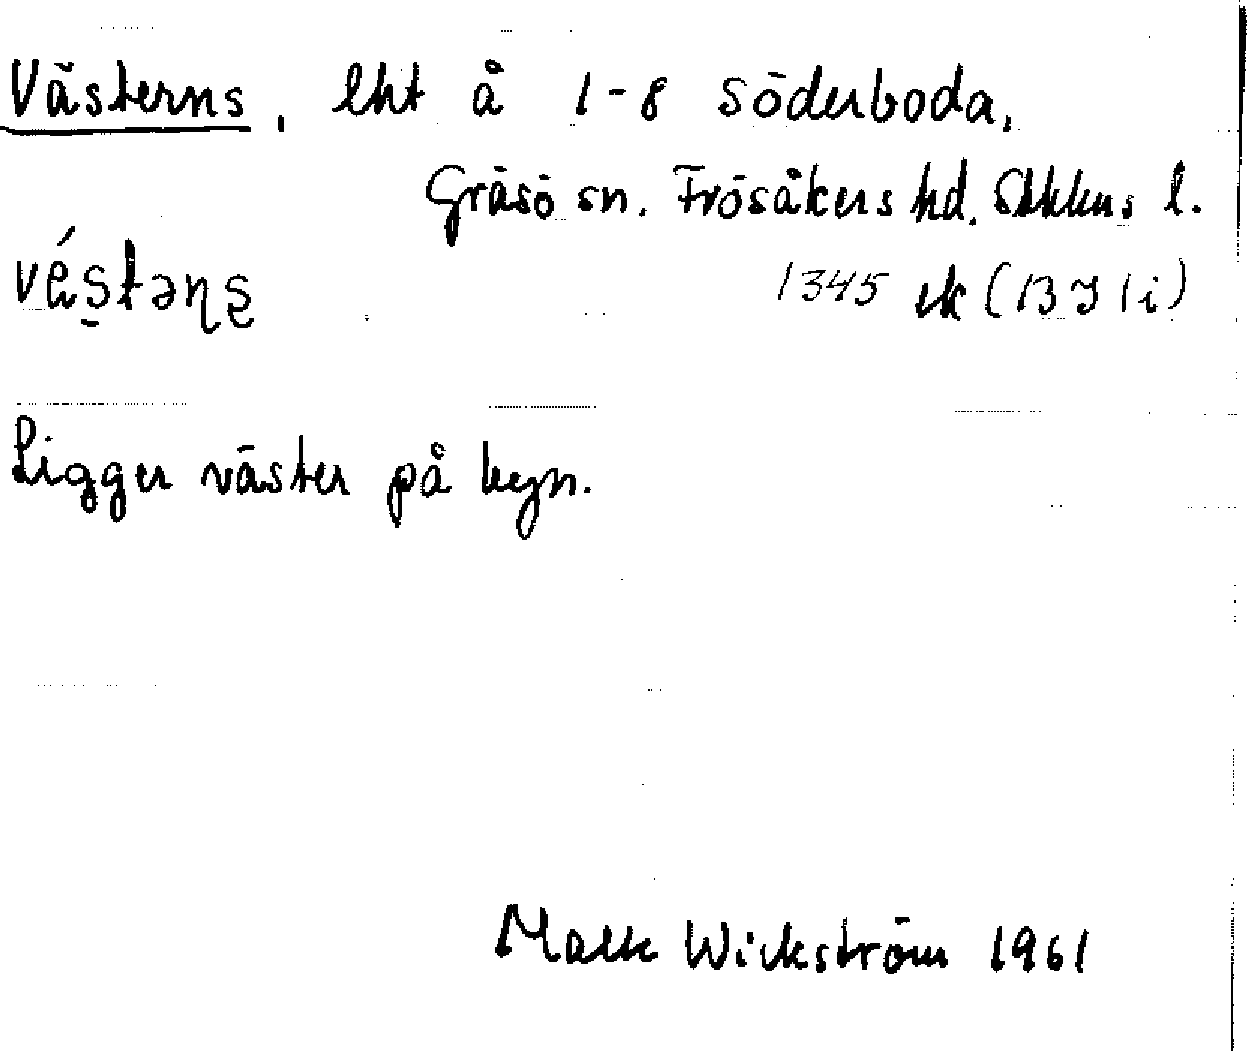 Västerns, lht å 1-8 Söderboda,
Gräsö sn. Frösåkers hd. Sthlms l.
véstəṇs
1345 ek (13 I 1 i)
Ligger väster på byn.
Wickström 1961